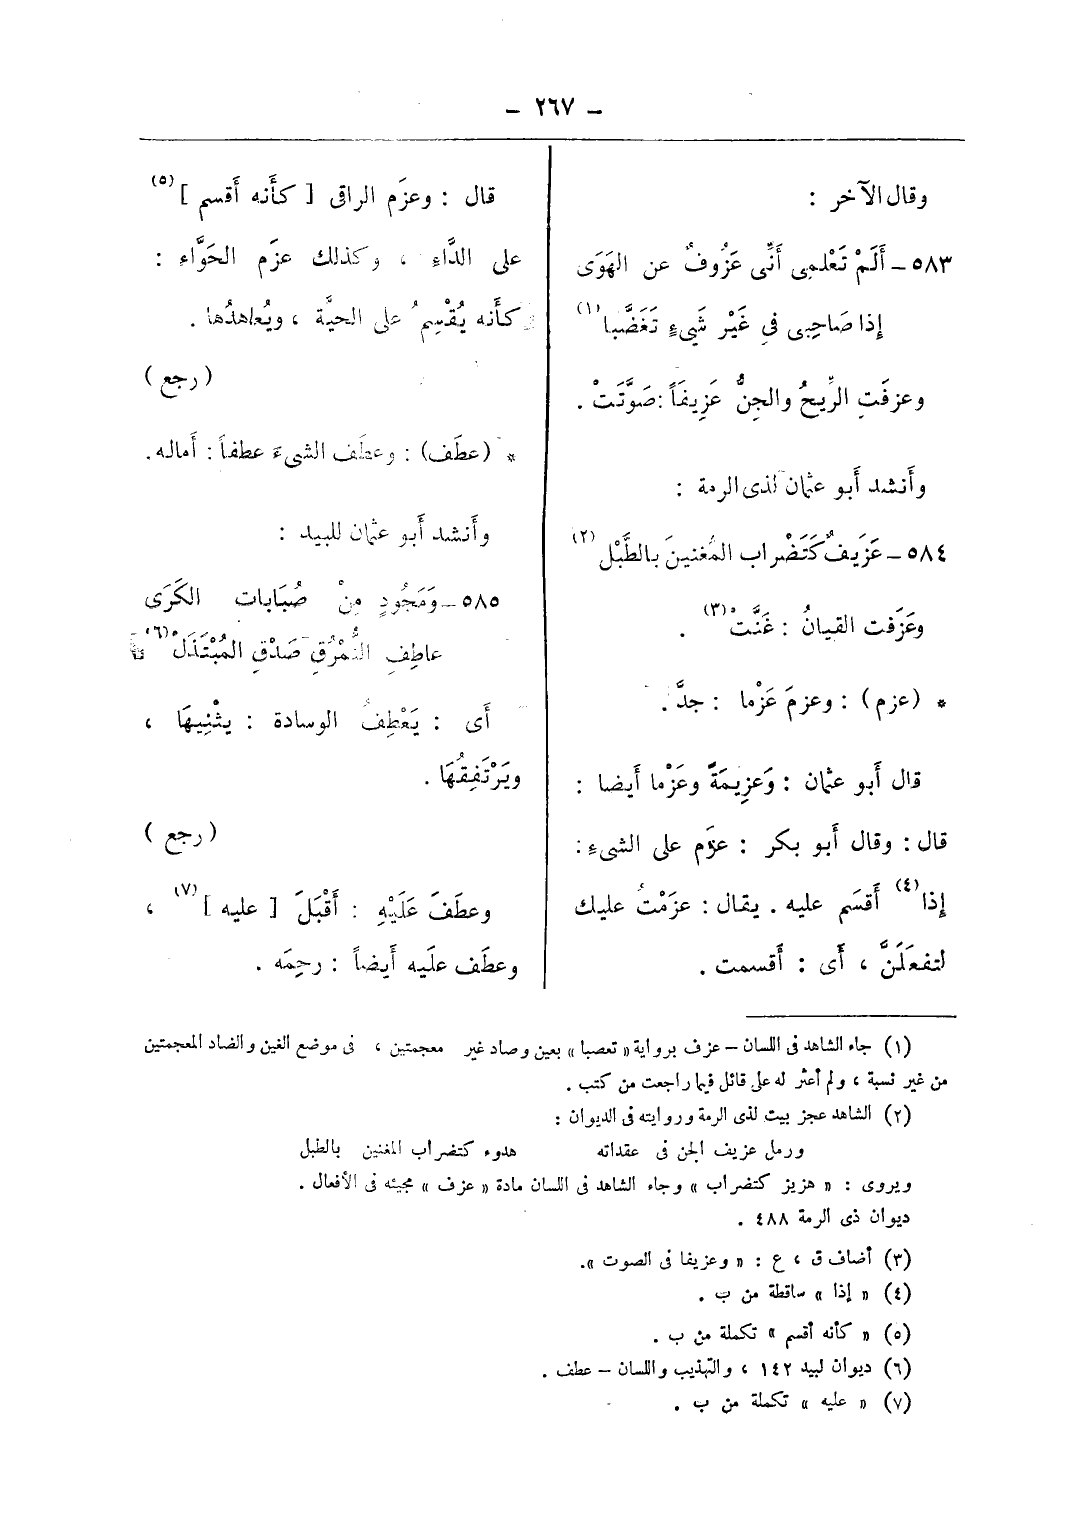 – ٢٦٧ –
وقال الآخر :
٥٨٣ – أَلَمْ تَعْلمِى أَنِّى عَزُوفٌ عن الهَوَى
إذا صَاحِبِى فِي غَيْر شَيءٍ تَغَضَّبا (١)
وعزفَتِ الرِّيحُ والجِنُّ عَزِيفَاً : صَوَّتَتْ .
وأَنشد أَبو عثمان لذى الرمة :
٥٨٤ – عَزَيفٌ كَتَضْراب المُغنينَ بالطَّبْل (٢)
وعَزَفت القيانُ : غَنَّتْ (٣) .
* (عزم) : وعزمَ عَزْما : جدَّ .
قال أَبو عثمان : وَعزِيمَةً وعَزْما أَيضا :
قال : وقال أَبو بكر : عزَم على الشىءِ :
إذا (٤) أَقسَم عليه . يقال : عزَمْتُ عليك
لتفعَلَنَّ ، أَى : أَقسمت .
قال : وعزَم الراقى [ كأَنه أَقسم ] (٥)
على الدَّاءِ ، وكذلك عزَم الحَوَّاء :
كأَنه يُقْسِمُ على الحيَّة ، ويُعاهدُها .
( رجع )
* (عطَف) : وعطَف الشىءَ عطفاً : أَماله .
وأَنشد أَبو عثمان للبيد :
٥٨٥ – وَمَجُودٍ مِنْ صُبَابات الكَرَى
عاطِفِ النُّمْرُقِ صَدْقِ المُبْتَذَلْ (٦)
أَى : يَعْطِفُ الوسادة : يثْنِيهَا ،
ويَرْتَفِقُهَا .
( رجع )
وعطَفَ عَلَيْهِ : أَقْبَلَ [ عليه ] (٧) ،
وعطَف علَيه أَيضاً : رحِمَه .
(١) جاء الشاهد فى اللسان – عزف برواية « تعصبا » بعين وصاد غير معجمتين ، فى موضع الغين والضاد المعجمتين
من غير نسبة ، ولم أعثر له على قائل فيما راجعت من كتب .
(٢) الشاهد عجز بيت لذى الرمة وروايته فى الديوان :
ورمل عزيف الجن فى عقداته هدوء كتضراب المغنين بالطبل
ويروى : « هزيز كتضراب » وجاء الشاهد فى اللسان مادة « عزف » مجيئه فى الأفعال .
ديوان ذى الرمة ٤٨٨ .
(٣) أضاف ق ، ع : « وعزيفا فى الصوت » .
(٤) « إذا » ساقطة من ب .
(٥) « كأنه أقسم » تكملة من ب .
(٦) ديوان لبيد ١٤٢ ، والتهذيب واللسان – عطف .
(٧) « عليه » تكملة من ب .